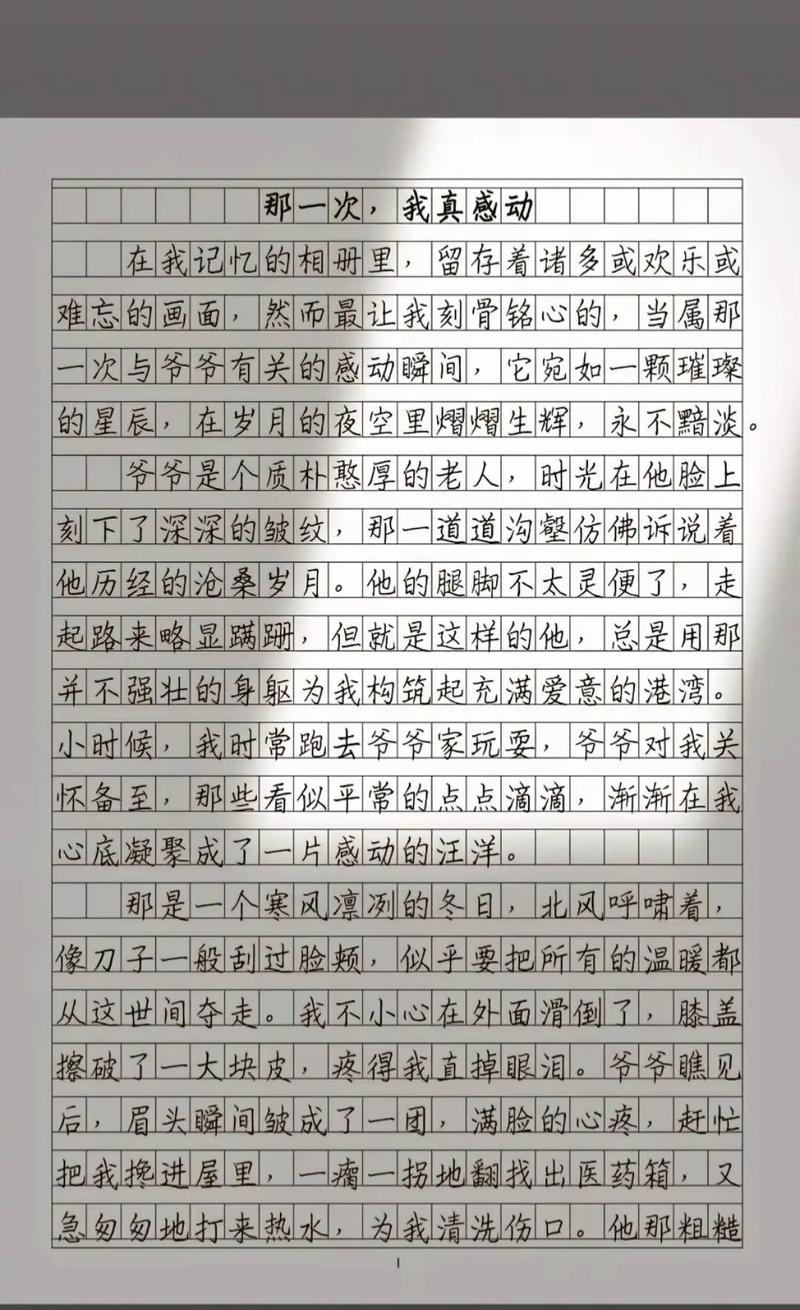 那一次，我真感动
在我记忆的相册里，留存着诸多或欢乐或
难忘的画面，然而最让我刻骨铭心的，当属那
一次与爷爷有关的感动瞬间，它宛如一颗璀璨
的星辰，在岁月的夜空里熠熠生辉，永不黯淡。
爷爷是个质朴憨厚的老人，时光在他脸上
刻下了深深的皱纹，那一道道沟壑仿佛诉说着
他历经的沧桑岁月。他的腿脚不太灵便了，走
起路来略显蹒跚，但就是这样的他，总是用那
并不强壮的身躯为我构筑起充满爱意的港湾。
小时候，我时常跑去爷爷家玩耍，爷爷对我关
怀备至，那些看似平常的点点滴滴，渐渐在我
心底凝聚成了一片感动的汪洋。
那是一个寒风凛冽的冬日，北风呼啸着，
像刀子一般刮过脸颊，似乎要把所有的温暖都
从这世间夺走。我不小心在外面滑倒了，膝盖
擦破了一大块皮，疼得我直掉眼泪。爷爷瞧见
后，眉头瞬间皱成了一团，满脸的心疼，赶忙
把我搀进屋里，一瘸一拐地翻找出医药箱，又
急匆匆地打来热水，为我清洗伤口。他那粗糙
1